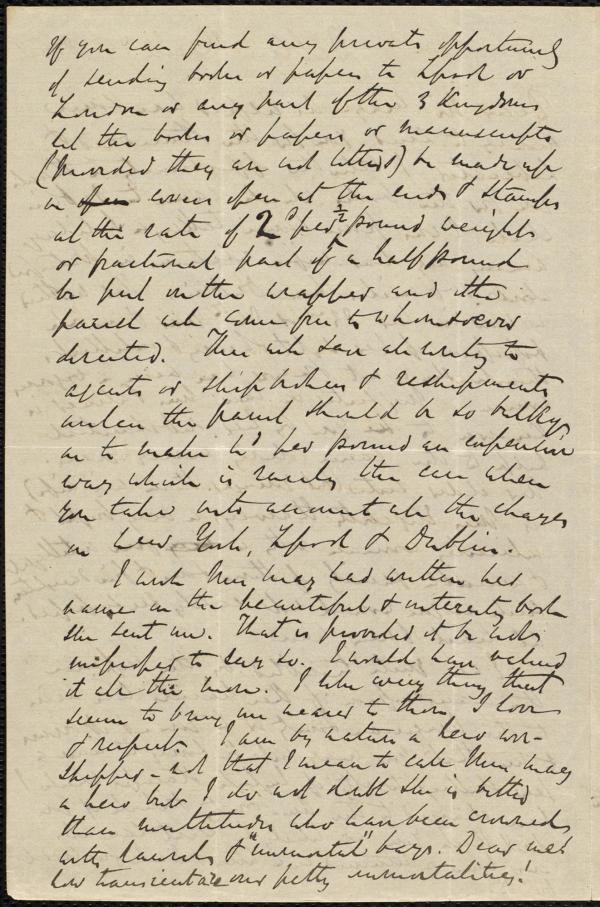 If you can find any private opportunity
of sending books or papers to Lpool or
London or any part of the 3 Kingdoms
let the books or papers or manuscripts
(provided they are not letters) be made up
in open covers open at the ends & stamps
at the rate of 2d per ½ pound weight
or fractional part of a half pound
be put on the wrapper and the
parcel will come free to whomsoever
directed. This will save all writing to
agents or shipbrokers & reshipments
unless the parcel should be so bulky
as to make per pound an expensive
way which is rarely the case when
you take into account all the charges
in New York, Lpool & Dublin.
I wish Miss May had written her
name in the beautiful & interesting book
she sent me. That is provided it be not
improper to say so. I would have valued
it all the more. I like every thing that
seems to bring me nearer to them I love
& respect. I am by nature a hero wor-
shipper - not that I mean to call Miss May
a hero but I do not doubt she is better
than multitudes who have been crowned
with laurels & "immortal" bays. Dear me!
how transient are our petty immortalities!